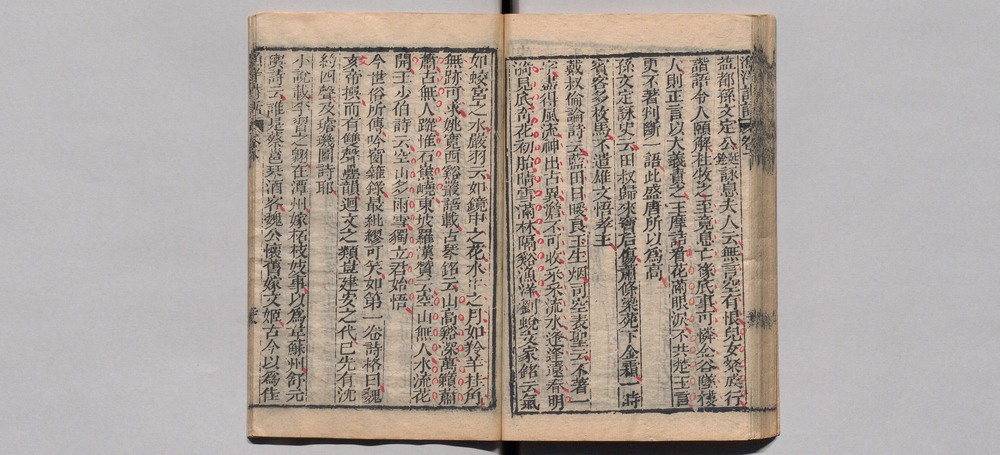 漁洋詩話 卷
益都孫文定公廷銓詠息夫人云無言空有恨兒女粲成行
諧語令人頤解杜牧之至竟息亡緣底事可憐金谷墜樓
人則正言以大義責之王摩詰看花滿眼淚不共楚王言
更不著判斷一語此盛唐所以為高
孫文定詠史云田叔歸來竇后傷蕭條梁苑下金霜一時
賓客多枚馬不遣雄文悟孝王
戴叔倫論詩云藍田日暖良玉生烟司空表聖云不著一
字盡得風流神出古異澹不可收采采流水逢逢遠春明
漪見底奇花初胎晴雪滿林隔谿漁洋劉蛻文冢銘云氣
如蛟宮之水嚴羽云如鏡中之花水中之月如羚羊挂角
無跡可求姚寬西谿叢語載古琴銘云山高谿深萬籟蕭
蕭古無人蹤惟石嶕嶢東坡羅漢贊云空山無人水流花
開王少伯詩云空山多雨雪獨立君始悟
今世俗所傳吟窗雜錄最紕繆可笑如第一卷詩格曰魏
文帝撰而有雙聲疊韻迴文之類豈建安之代已先有沈
約四聲及璿璣圖詩耶
小說載李習之翱在潭州嫁柘枝妓事以為韋蘇州舒元
輿詩云誰是蔡邕琴酒客魏公懷舊嫁文姬古今以為佳